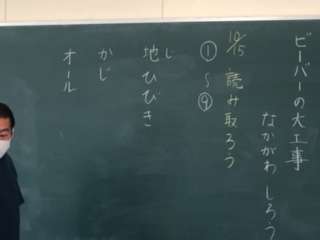 ビーバーの大工事
なかがわ しろう
10/15 読み取ろう
①~⑨
じ
地ひびき
かじ
オール